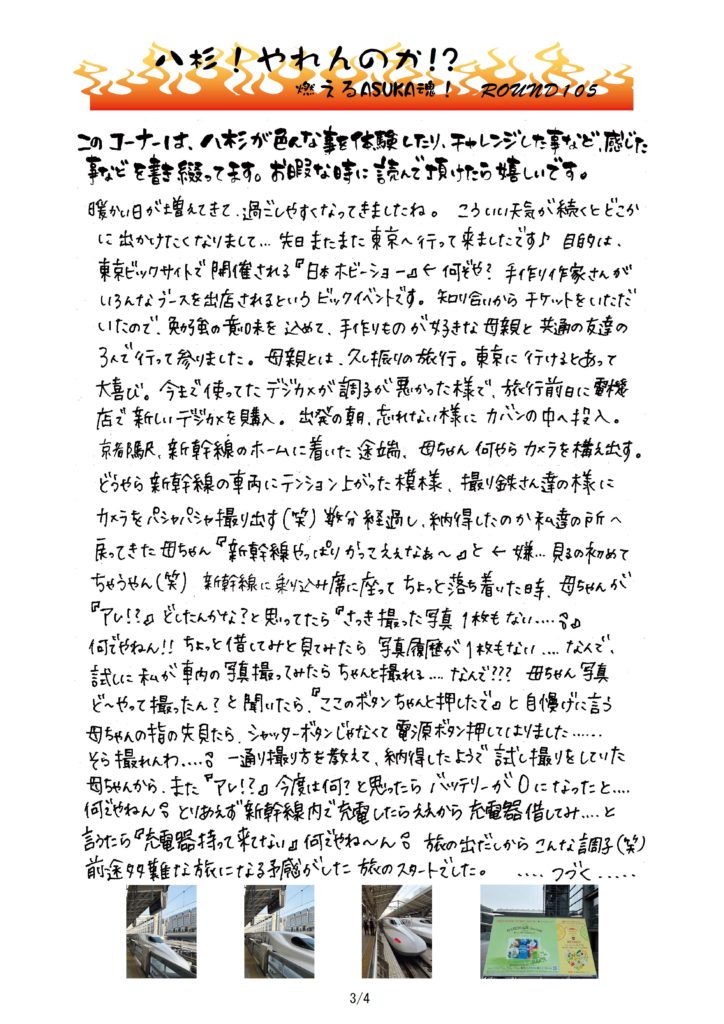 八杉！やれんのか!?
燃えるASUKA魂！ ROUND105
このコーナーは、八杉が色んな事を体験したり、チャレンジした事など、感じた
事などを書き綴ってます。お暇な時に読んで頂けたら嬉しいです。
暖かい日が増えてきて、過ごしやすくなってきましたね。 こういい天気が続くとどこか
に出かけたくなりまして… 先日またまた東京へ行って来ましたです♪ 目的は、
東京ビックサイトで開催される『日本ホビーショー』← 何ぞや? 手作り作家さんが
いろんなブースを出店されるというビックイベントです。 知り合いからチケットをいただ
いたので、勉強の意味を込めて、手作りものが好きな母親と共通の友達の
3人で行って参りました。 母親とは、久し振りの旅行。東京に行けるとあって
大喜び。今まで使ってたデジカメが調子が悪かった様で、旅行前日に電機
店で新しいデジカメを購入。 出発の朝、忘れない様にカバンの中へ投入。
京都駅、新幹線のホームに着いた途端、母ちゃん何やらカメラを構え出す。
どうやら新幹線の車両にテンション上がった模様、撮り鉄さん達の様に
カメラをパシャパシャ撮り出す(笑) 数分経過し、納得したのか私達の所へ
戻ってきた母ちゃん『新幹線やっぱりかってええなぁ〜』と ← 嫌… 見るの初めて
ちゃうやん(笑) 新幹線に乗り込み席に座ってちょっと落ち着いた時、母ちゃんが
『アレ!?』どしたんかな?と思ってたら『さっき撮った写真1枚もない….』
何でやねん!! ちょっと借してみと見てみたら 写真履歴が1枚もない…. なんで、
試しに私が車内の写真撮ってみたらちゃんと撮れる…. なんで??? 母ちゃん写真
ど〜やって撮ったん?と聞いたら、『ここのボタンちゃんと押したで』と自慢げに言う
母ちゃんの指の先見たら、シャッターボタンじゃなくて電源ボタン押してはりました……
そら撮れんわ…. 一通り撮り方を教えて、納得したようで試し撮りをしていた
母ちゃんから、また『アレ!?』今度は何?と思ったらバッテリーが0になったと….
何でやねん とりあえず新幹線内で充電したらええから充電器借してみ….と
言うたら『充電器持って来てない』何でやね〜ん 旅の出だしからこんな調子(笑)
前途多難な旅になる予感がした旅のスタートでした。 ….つづく…..
3/4